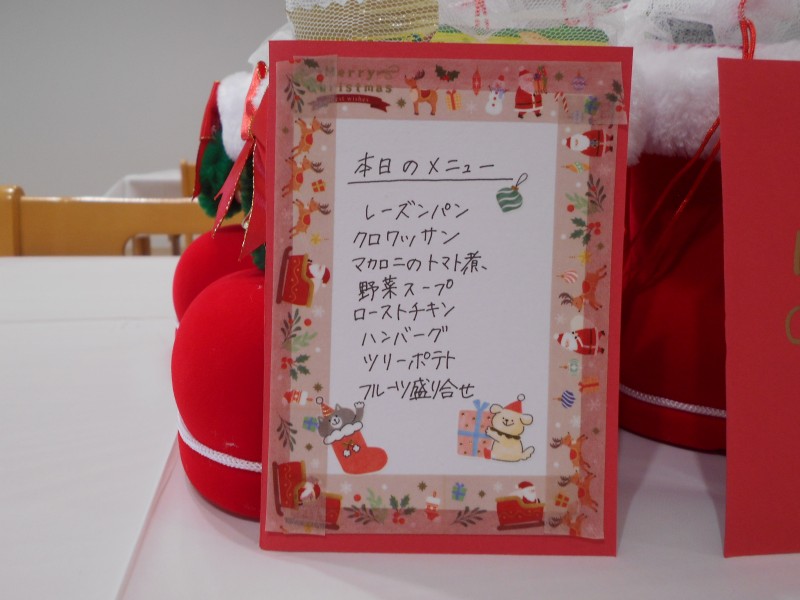 Merry
Christmas
本日のメニュー
レーズンパン
クロワッサン
マカロニのトマト煮、
野菜スープ
ローストチキン
ハンバーグ
ツリーポテト
フルーツ盛り合せ